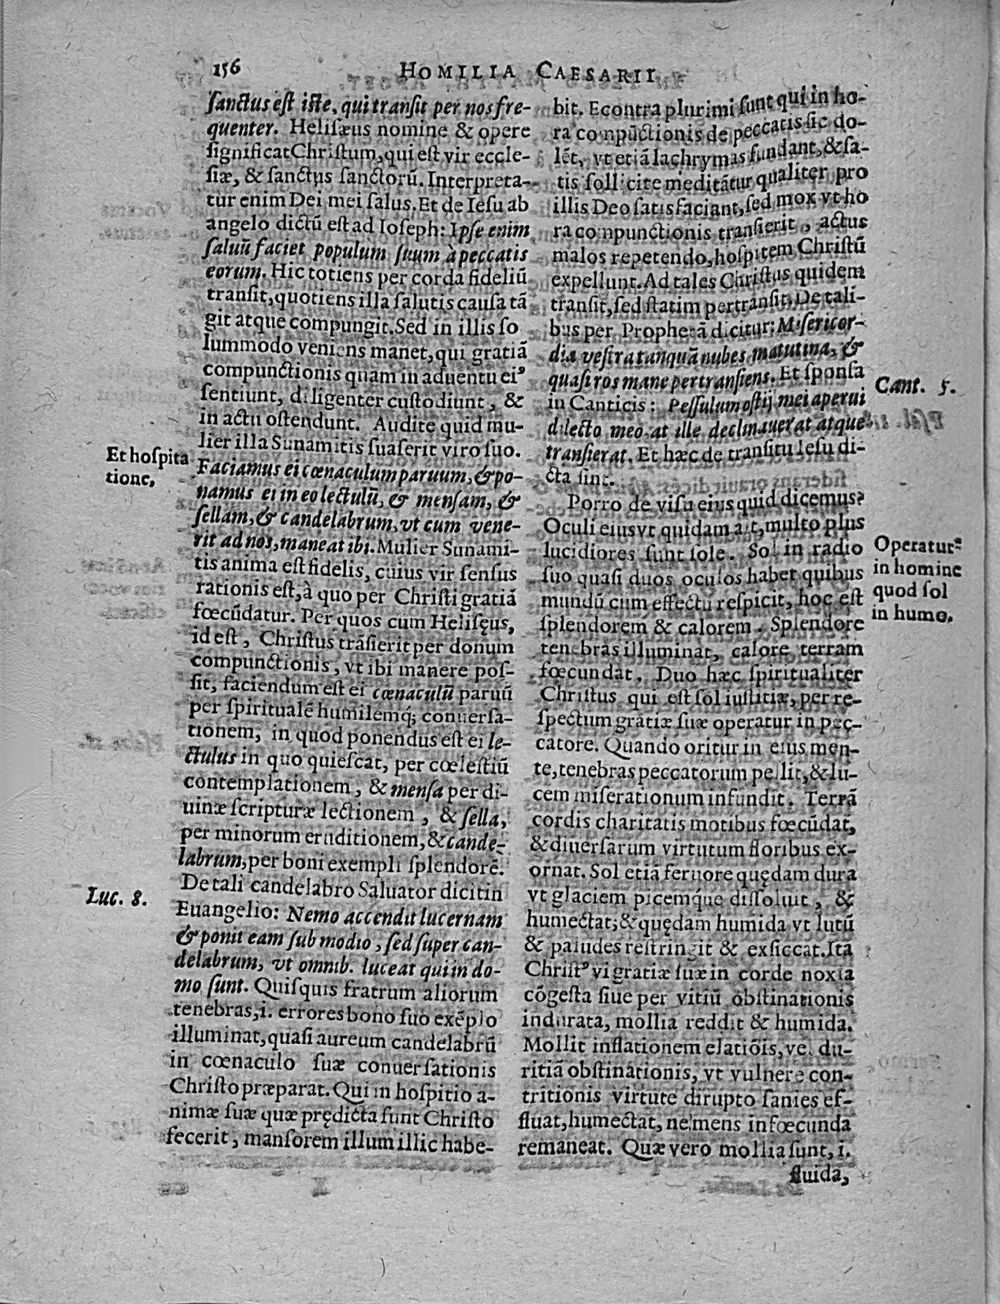 156
HOMILIA CAESARII
sanctus est iste, qui transit per nos fre-
quenter. Helisæus nomine & opere
significat Christum, qui est vir eccle-
siæ, & sanctus sanctorũ. Interpreta-
tur enim Dei mei salus. Et de Iesu ab
angelo dictũ est ad Ioseph: Ipse enim
saluũ faciet populum suum à peccatis
eorum. Hic totiens per corda fideliũ
transit, quotiens illa salutis causa tã
git atque compungit. Sed in illis so
lummodo veniens manet, qui gratiã
compunctionis quam in aduentu ei⁹
sentiunt, diligenter custodiunt, &
in actu ostendunt. Audite quid mu-
lier illa Sunamitis suaserit viro suo.
Et hospita
tione,
Faciamus ei cœnaculum paruum, & po-
namus ei in eo lectulũ, & mensam, &
sellam, & candelabrum, vt cum vene-
rit ad nos, maneat ibi. Mulier Sunami-
tis anima est fidelis, cuius vir sensus
rationis est, à quo per Christi gratiã
fœcũdatur. Per quos cum Helisęus,
id est, Christus trãsierit per donum
compunctionis, vt ibi manere pos-
sit, faciendum est ei cœnaculũ paruũ
per spiritualẽ humilemq; conuersa-
tionem, in quod ponendus est ei le-
ctulus in quo quiescat, per cœlestiũ
contemplationem, & mensa per di-
uinæ scripturæ lectionem, & sella,
per minorum eruditionem, & cande-
labrum, per boni exempli splendorẽ.
De tali candelabro Saluator dicit in
Luc. 8.
Euangelio: Nemo accendit lucernam
& ponit eam sub modio, sed super can-
delabrum, vt omnib. luceat qui in do-
mo sunt. Quisquis fratrum aliorum
tenebras, i. errores bono suo exẽplo
illuminat, quasi aureum candelabrũ
in cœnaculo suæ conuersationis
Christo præparat. Qui in hospitio a-
nimæ suæ quæ prędicta sunt Christo
fecerit, mansorem illum illic habe-
bit. Econtra plurimi sunt qui in ho-
ra compũctionis de peccatis sic do-
lẽt, vt etiã lachrymas fundant, & sa-
tis sollicite meditãtur qualiter pro
illis Deo satisfaciant, sed mox vt ho
ra compunctionis transierit, actus
malos repetendo, hospitem Christũ
expellunt. Ad tales Christus quidem
transit, sed statim pertransit. De tali-
bus per Prophetã dicitur: Misericor-
dia vestra tanquã nubes matutina, &
quasi ros mane pertransiens. Et sponsa
Cant. 5.
in Canticis: Pessulum ostij mei aperui
dilecto meo, at ille declinauerat atque
transierat. Et hæc de transitu Iesu di-
cta sint.
Porro de visu eius quid dicemus?
Oculi eius vt quidam ait, multo plus
lucidiores sunt sole. Sol in radio
Operatur⁹
in homine
quod sol
in humo.
suo quasi duos oculos habet quibus
mundũ cum effectu respicit, hoc est
splendorem & calorem. Splendore
tenebras illuminat, calore terram
fœcundat. Duo hæc spiritualiter
Christus qui est sol iustitiæ, per re-
spectum gratiæ suæ operatur in pęc-
catore. Quando oritur in eius men-
te, tenebras peccatorum pellit, & lu-
cem miserationum infundit. Terrã
cordis charitatis motibus fœcũdat,
& diuersarum virtutum floribus ex-
ornat. Sol etiã feruore quędam dura
vt glaciem picemque dissoluit, &
humectat; & quędam humida vt lutũ
& paludes restringit & exsiccat. Ita
Christ⁹ vi gratiæ suæ in corde noxia
cõgesta siue per vitiũ obstinationis
indurata, mollia reddit & humida.
Mollit inflationem elatiõis, vel du-
ritiã obstinationis, vt vulnere con-
tritionis virtute dirupto sanies ef-
fluat, humectat, ne mens infœcunda
remaneat. Quæ vero mollia sunt, i.
fluida,